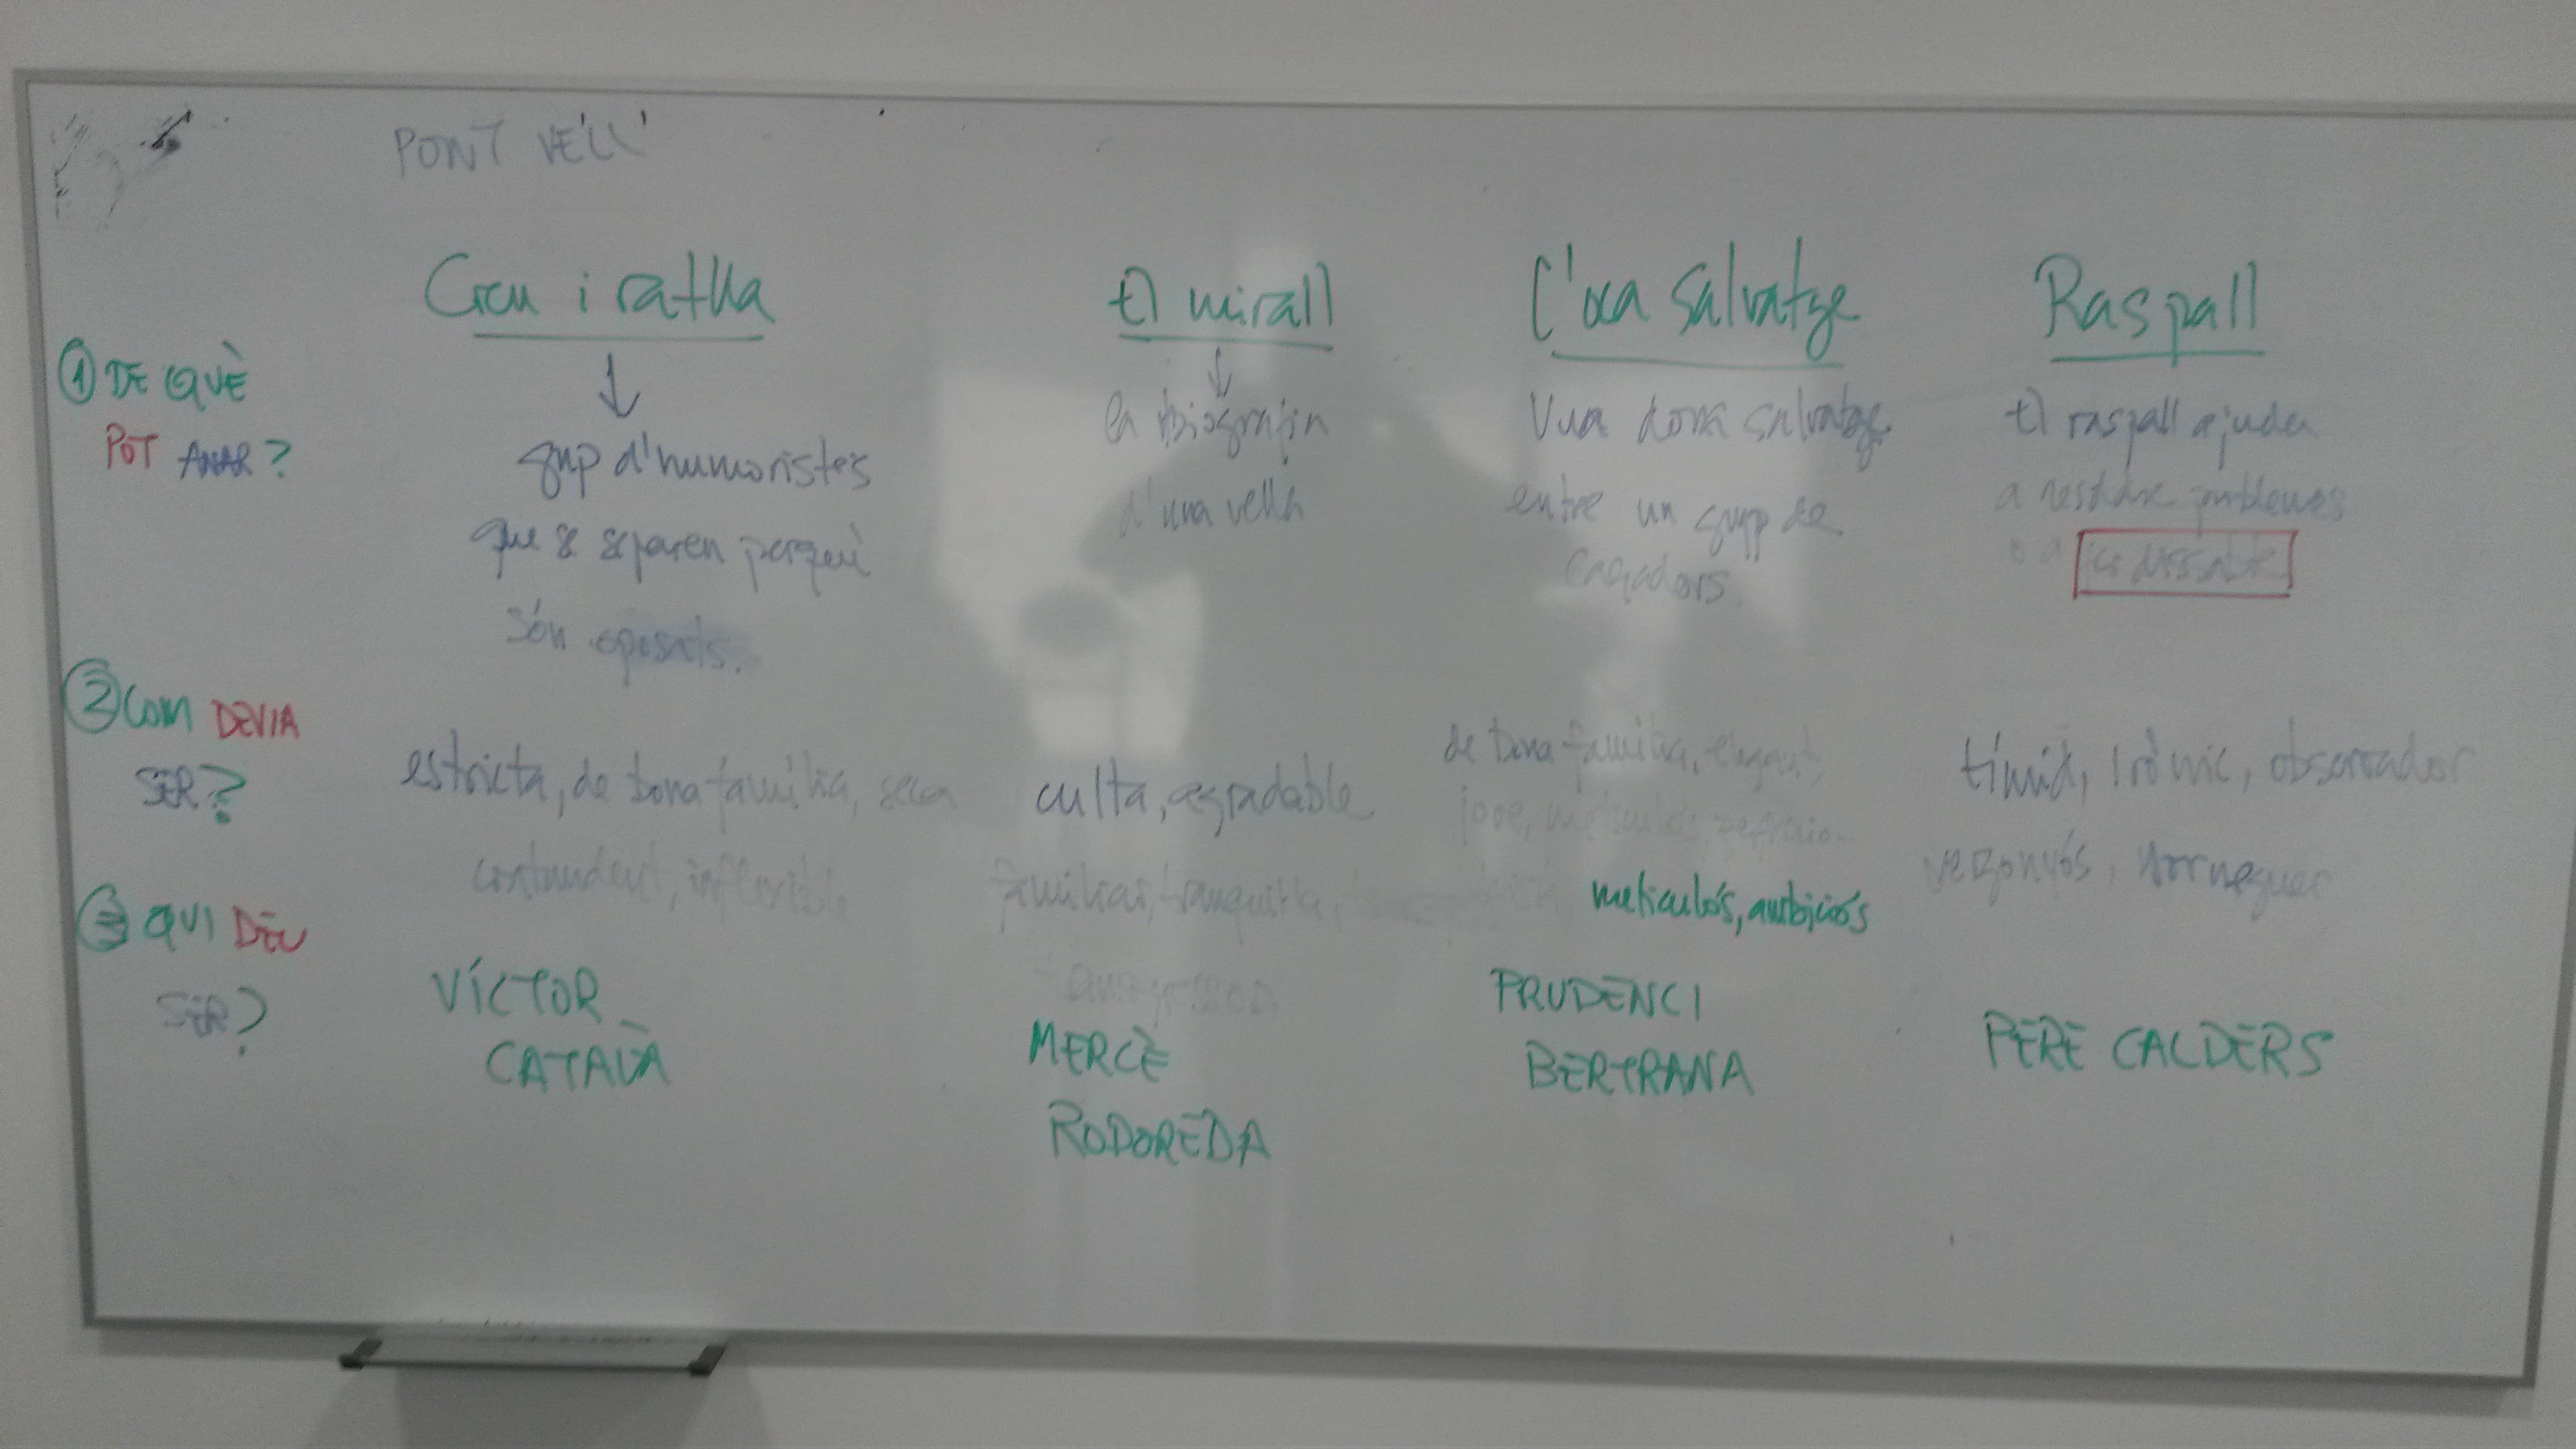 PONT VELL
Creu i ratlla
El mirall
L'oca salvatge
Raspall
① DE QUÈ
POT ANAR?
grup d'humoristes
que se separen perquè
són oposats.
la biografia
d'una vella
Una dona salvatge
entre un grup de
caçadors.
El raspall ajuda
a resoldre problemes
② COM DEVIA
SER?
estricta, de bona família, seca
contundent, inflexible
culta, agradable
familiar, tranquil·la,
de bona família, elegant,
jove,
meticulós, ambiciós
tímid, irònic, observador
vergonyós, borneguer
③ QUI DEU
SER?
VÍCTOR
CATALÀ
MERCÈ
RODOREDA
PRUDENCI
BERTRANA
PERE CALDERS